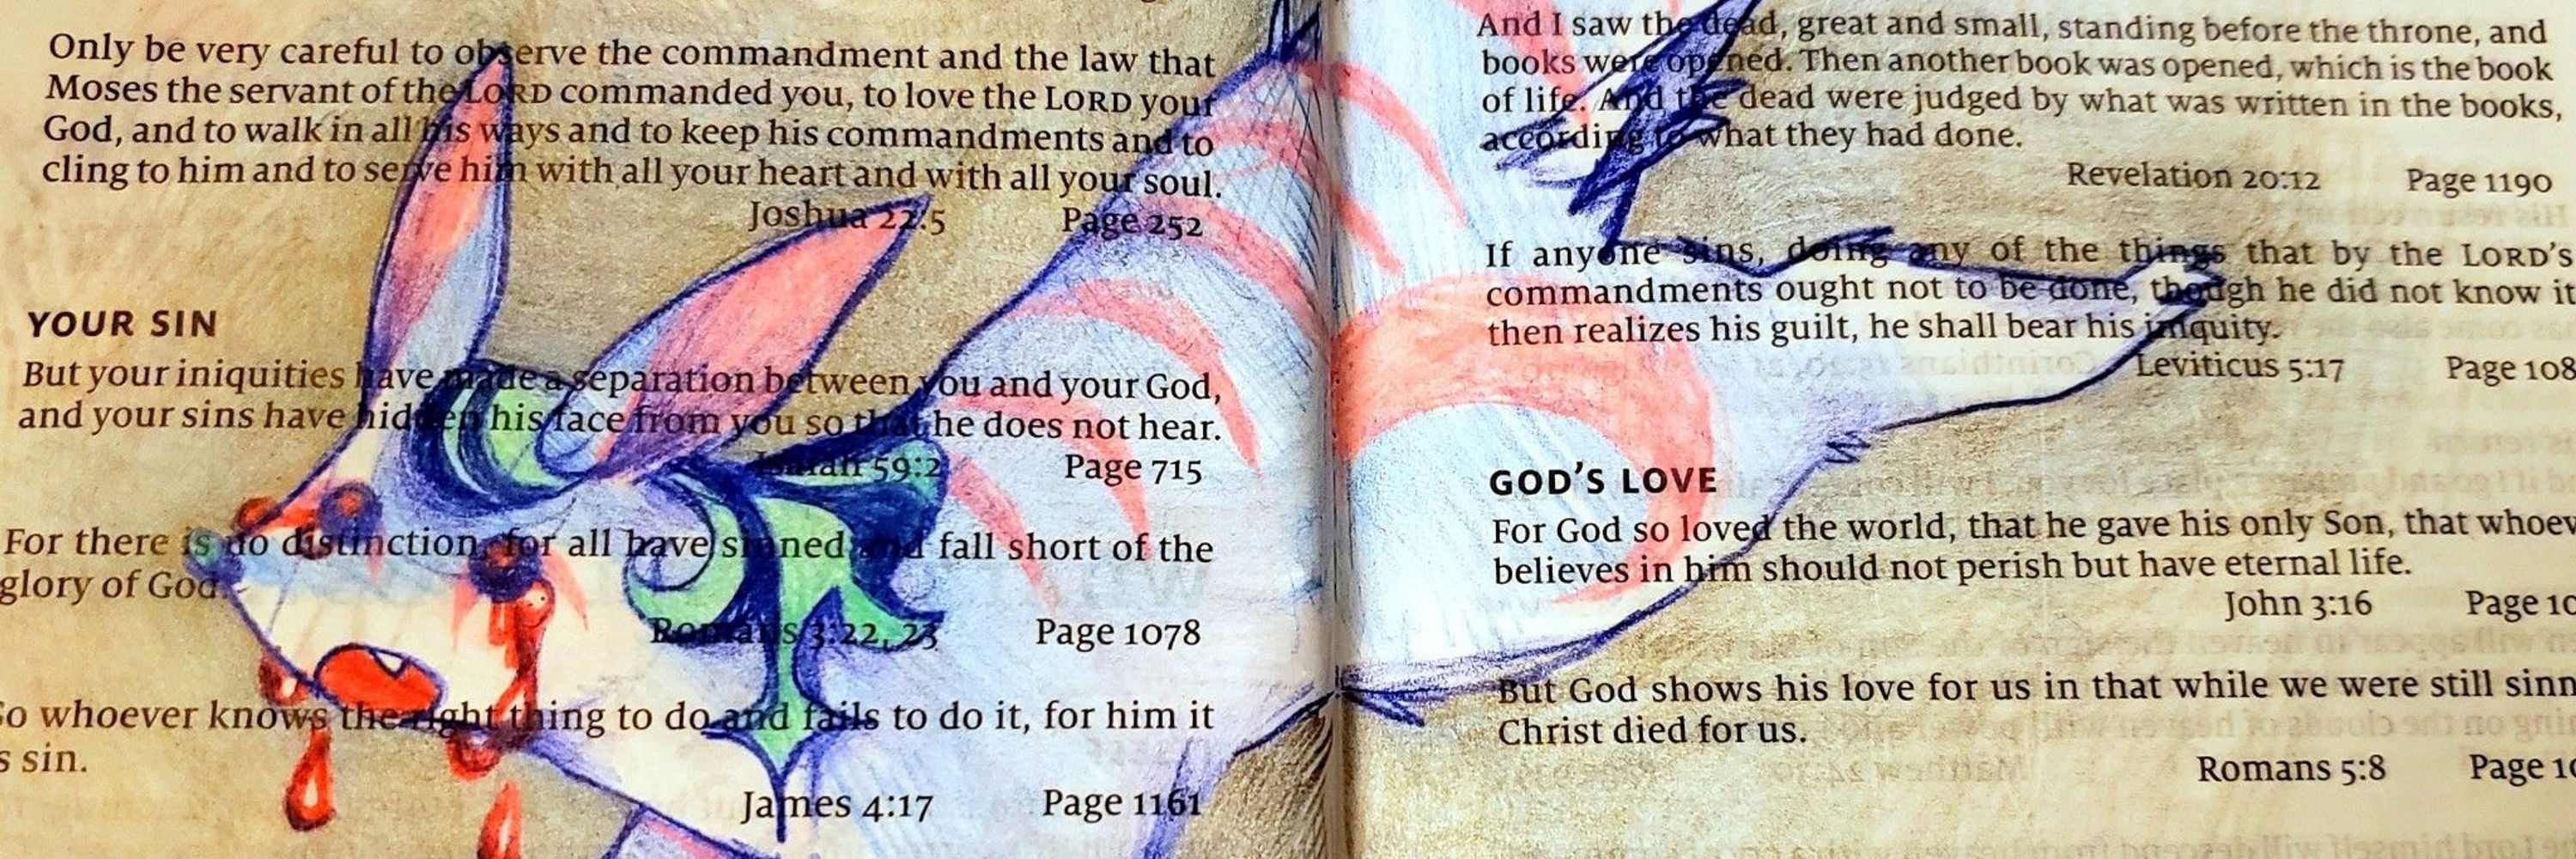 Only be very careful to observe the commandment and the law that
Moses the servant of the LORD commanded you, to love the LORD your
God, and to walk in all his ways and to keep his commandments and to
cling to him and to serve him with all your heart and with all your soul.
Joshua 22:5 Page 252
YOUR SIN
But your iniquities have made a separation between you and your God,
and your sins have hidden his face from you so that he does not hear.
Isaiah 59:2 Page 715
For there is no distinction, for all have sinned and fall short of the
glory of God
Romans 3:22, 23 Page 1078
So whoever knows the right thing to do and fails to do it, for him it
s sin.
James 4:17 Page 1161
And I saw the dead, great and small, standing before the throne, and
books were opened. Then another book was opened, which is the book
of life. And the dead were judged by what was written in the books,
according to what they had done.
Revelation 20:12 Page 1190
If anyone sins, doing any of the things that by the LORD'S
commandments ought not to be done, though he did not know it
then realizes his guilt, he shall bear his iniquity.
Leviticus 5:17 Page 108
GOD'S LOVE
For God so loved the world, that he gave his only Son, that whoev
believes in him should not perish but have eternal life.
John 3:16 Page 10
But God shows his love for us in that while we were still sinn
Christ died for us.
Romans 5:8 Page 10